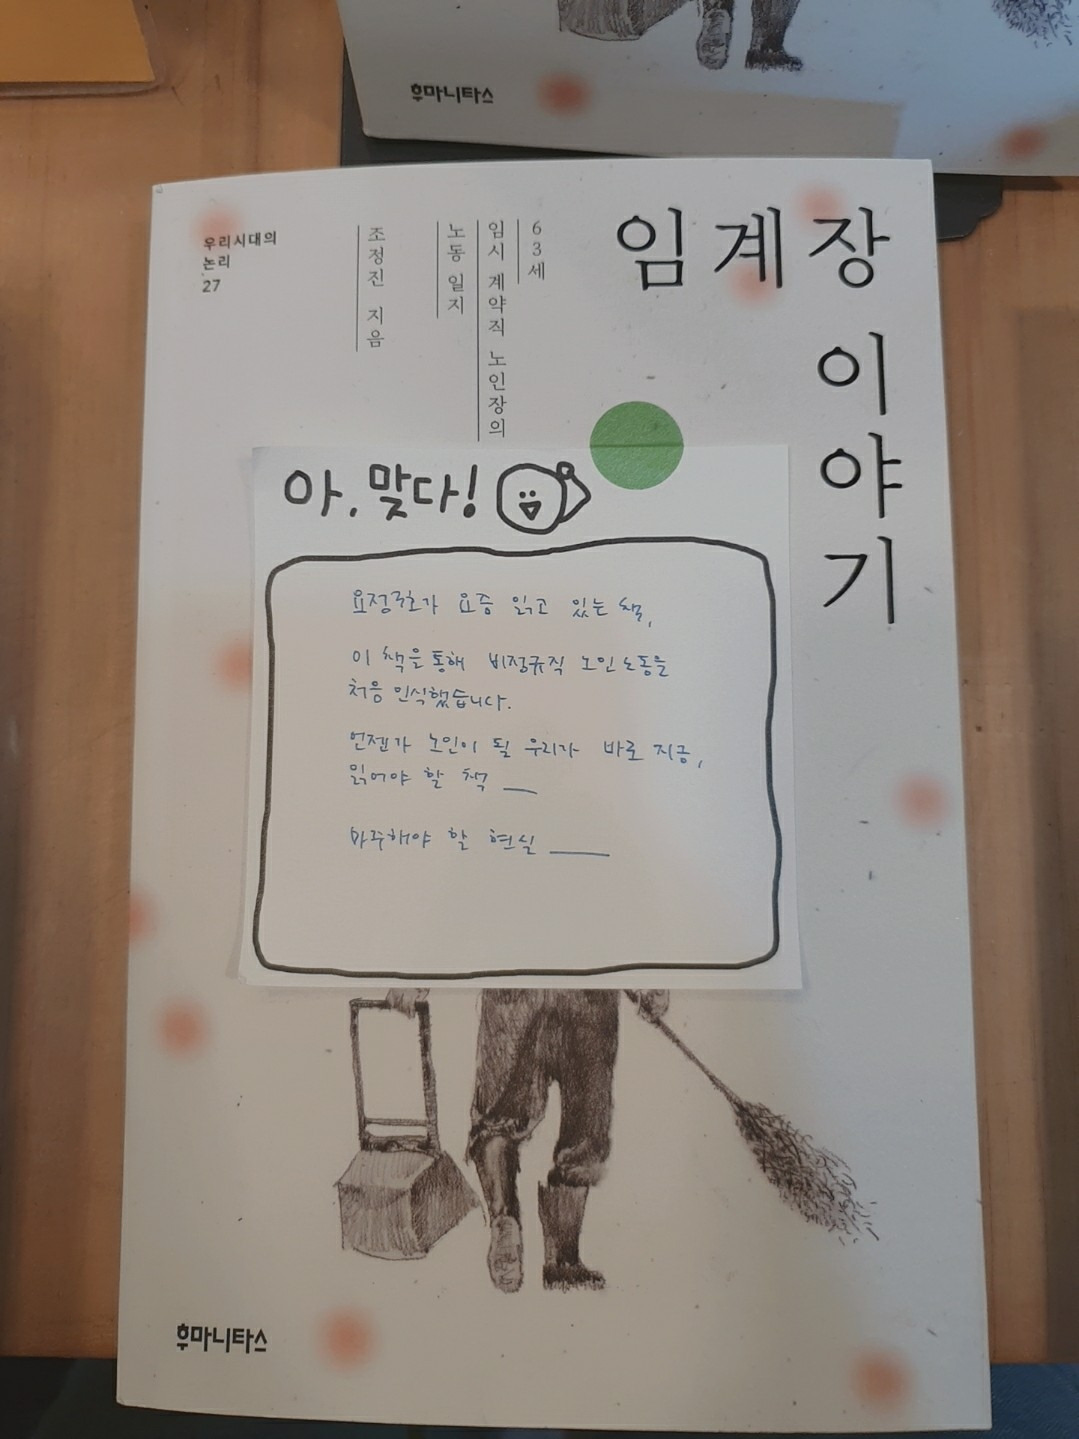 후마니타스
임계장
이야기
63세
임시 계약직 노인장의
노동 일지
조정진 지음
우리시대의
논리
27
아, 맞다!
요정7호가 요즘 읽고 있는 책,
이 책을 통해 비정규직 노인노동을
처음 인식했습니다.
언젠가 노인이 될 우리가 바로 지금,
읽어야 할 책 __
마주해야 할 현실 ____
후마니타스